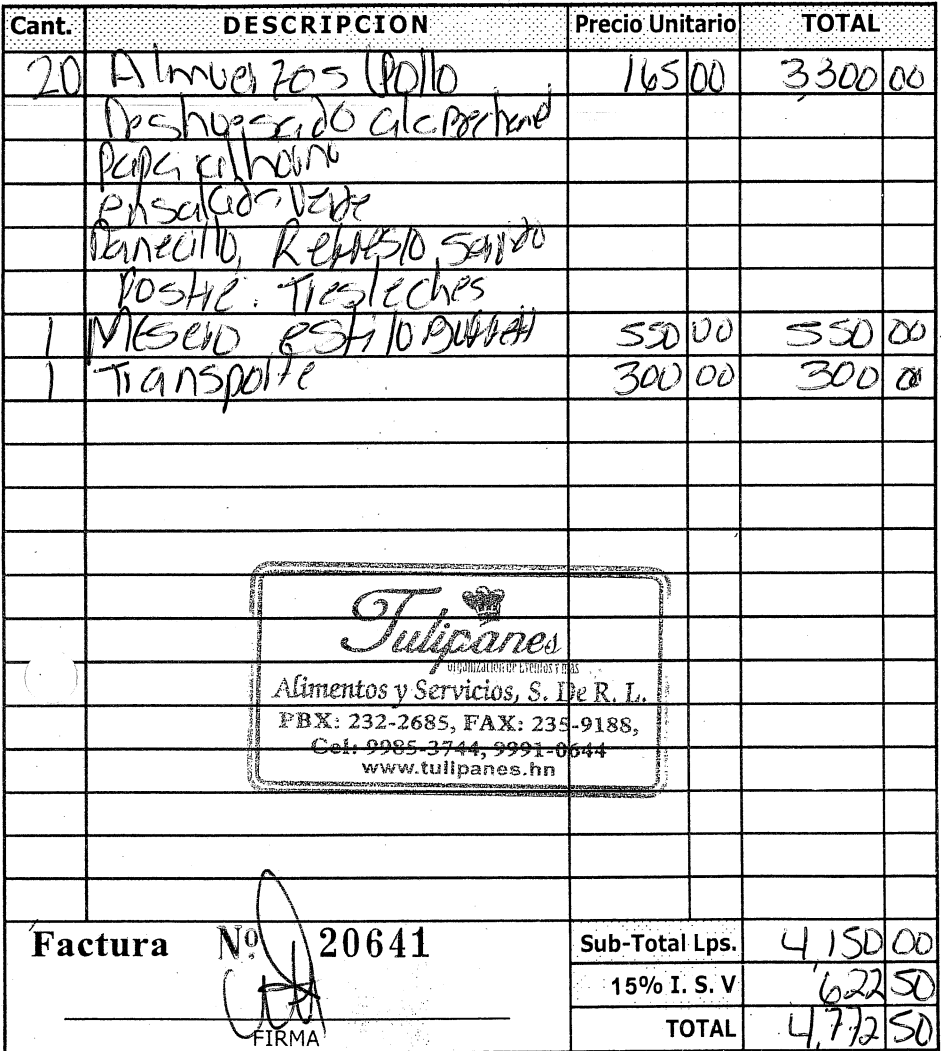 Cant. DESCRIPCION Precio Unitario TOTAL
20 Almuerzos (Pollo 165 00 3,300 00
Deshuesado a la Bechamel
papa al horno
ensalada verde
Panecillo, Refresco surtido
Postre. Tresleches
1 Mesero estilo Buffet 550 00 550 00
1 Transporte 300 00 300 00
Tulipanes
Organización de Eventos y más
Alimentos y Servicios, S. De R. L.
PBX: 232-2685, FAX: 235-9188,
Cel: 9985-3744, 9991-0644
www.tulipanes.hn
Factura Nº 20641 Sub-Total Lps. 4,150 00
15% I. S. V 622 50
FIRMA TOTAL 4,772 50